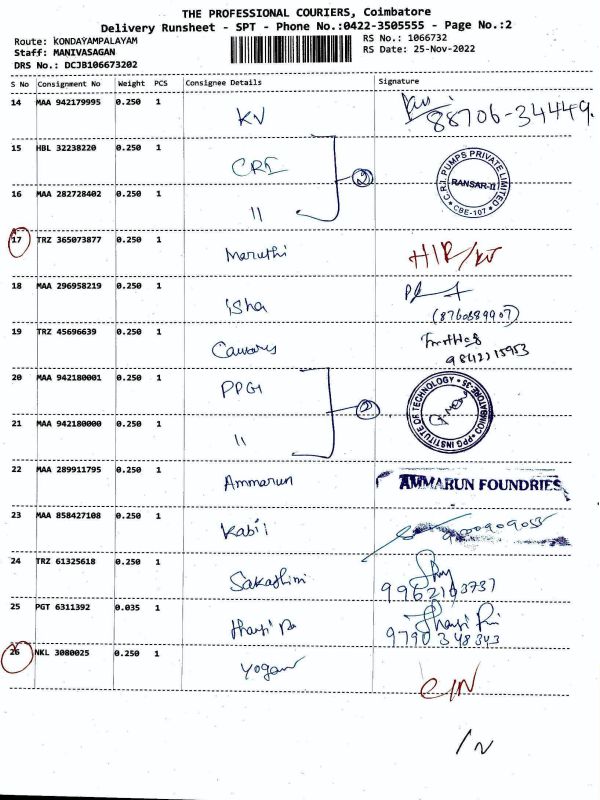 THE PROFESSIONAL COURIERS, Coimbatore
Delivery Runsheet - SPT - Phone No.:0422-3505555 - Page No.:2
Route: KONDAYAMPALAYAM RS No.: 1066732
Staff: MANIVASAGAN RS Date: 25-Nov-2022
DRS No.: DCJB106673202
S No Consignment No Weight PCS Consignee Details Signature
14 MAA 942179995 0.250 1 KV 88706-34449.
15 HBL 32238220 0.250 1 CRI
16 MAA 282728402 0.250 1 11
2
C.R.I. PUMPS PRIVATE LIMITED
RANSAR-II
CBE-107
17 TRZ 365073877 0.250 1 Maruthi
18 MAA 296958219 0.250 1 Isha
(8760889907)
19 TRZ 45696639 0.250 1
20 MAA 942180001 0.250 1 PPG1
21 MAA 942180000 0.250 1 11
2
PPG INSTITUTE OF TECHNOLOGY
COIMBATORE-35
22 MAA 289911795 0.250 1 Ammarun AMMARUN FOUNDRIES
23 MAA 858427108 0.250 1 Kabil
24 TRZ 61325618 0.250 1
9962163737
25 PGT 6311392 0.035 1
9790348343
26 NKL 3080025 0.250 1 Yogan C/N
/N